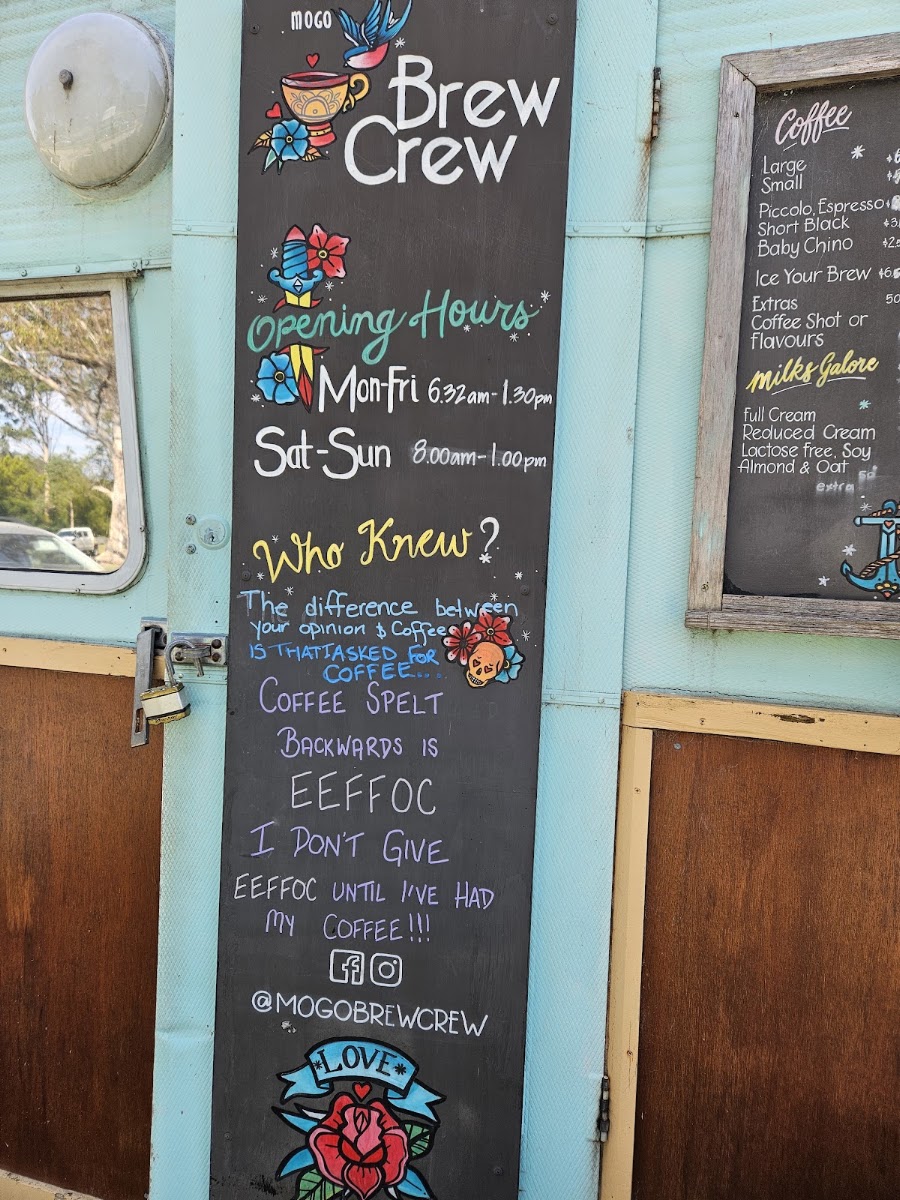 MOGO
Brew
Crew
Opening Hours
Mon-Fri 6.32am-1.30pm
Sat-Sun 8.00am-1.00pm
Who Knew?
The difference between
your opinion & Coffee
IS THAT I ASKED FOR
COFFEE....
COFFEE SPELT
BACKWARDS IS
EEFFOC
I DON'T GIVE
EEFFOC UNTIL I'VE HAD
MY COFFEE!!!
@MOGOBREWCREW
*LOVE*
Coffee
Large
Small
Piccolo, Espresso
Short Black
Baby Chino
Ice Your Brew
Extras
Coffee Shot or
Flavours
Milks Galore
Full Cream
Reduced Cream
Lactose free, Soy
Almond & Oat
extra